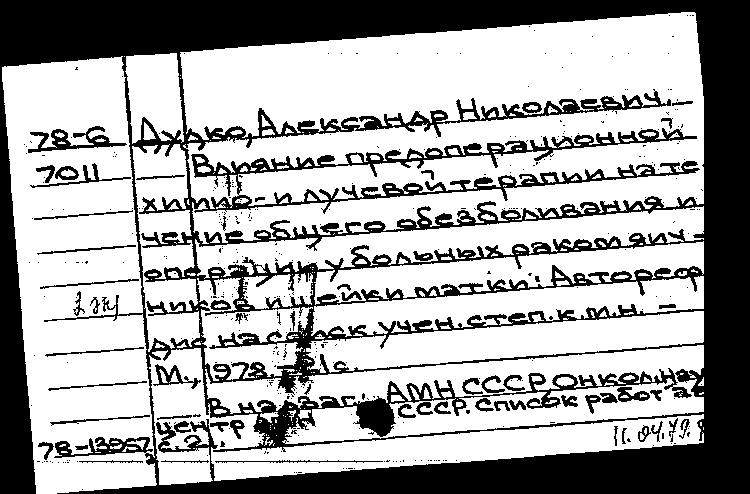 78-6 Дудко, Александр Николаевич.
7011 Влияние предоперационной
химио- и лучевой терапии на те-
чение общего обезболивания и
операции у больных раком яич-
2 экз
ников и шейки матки: Автореф
дис. на соиск. учен. степ. к.м.н. –
М., 1978. – 21 с.
В надзаг.: АМН СССР Онкол. нау
центр СССР. Список работ ав
78-13957 с. 21.
11.04.79.